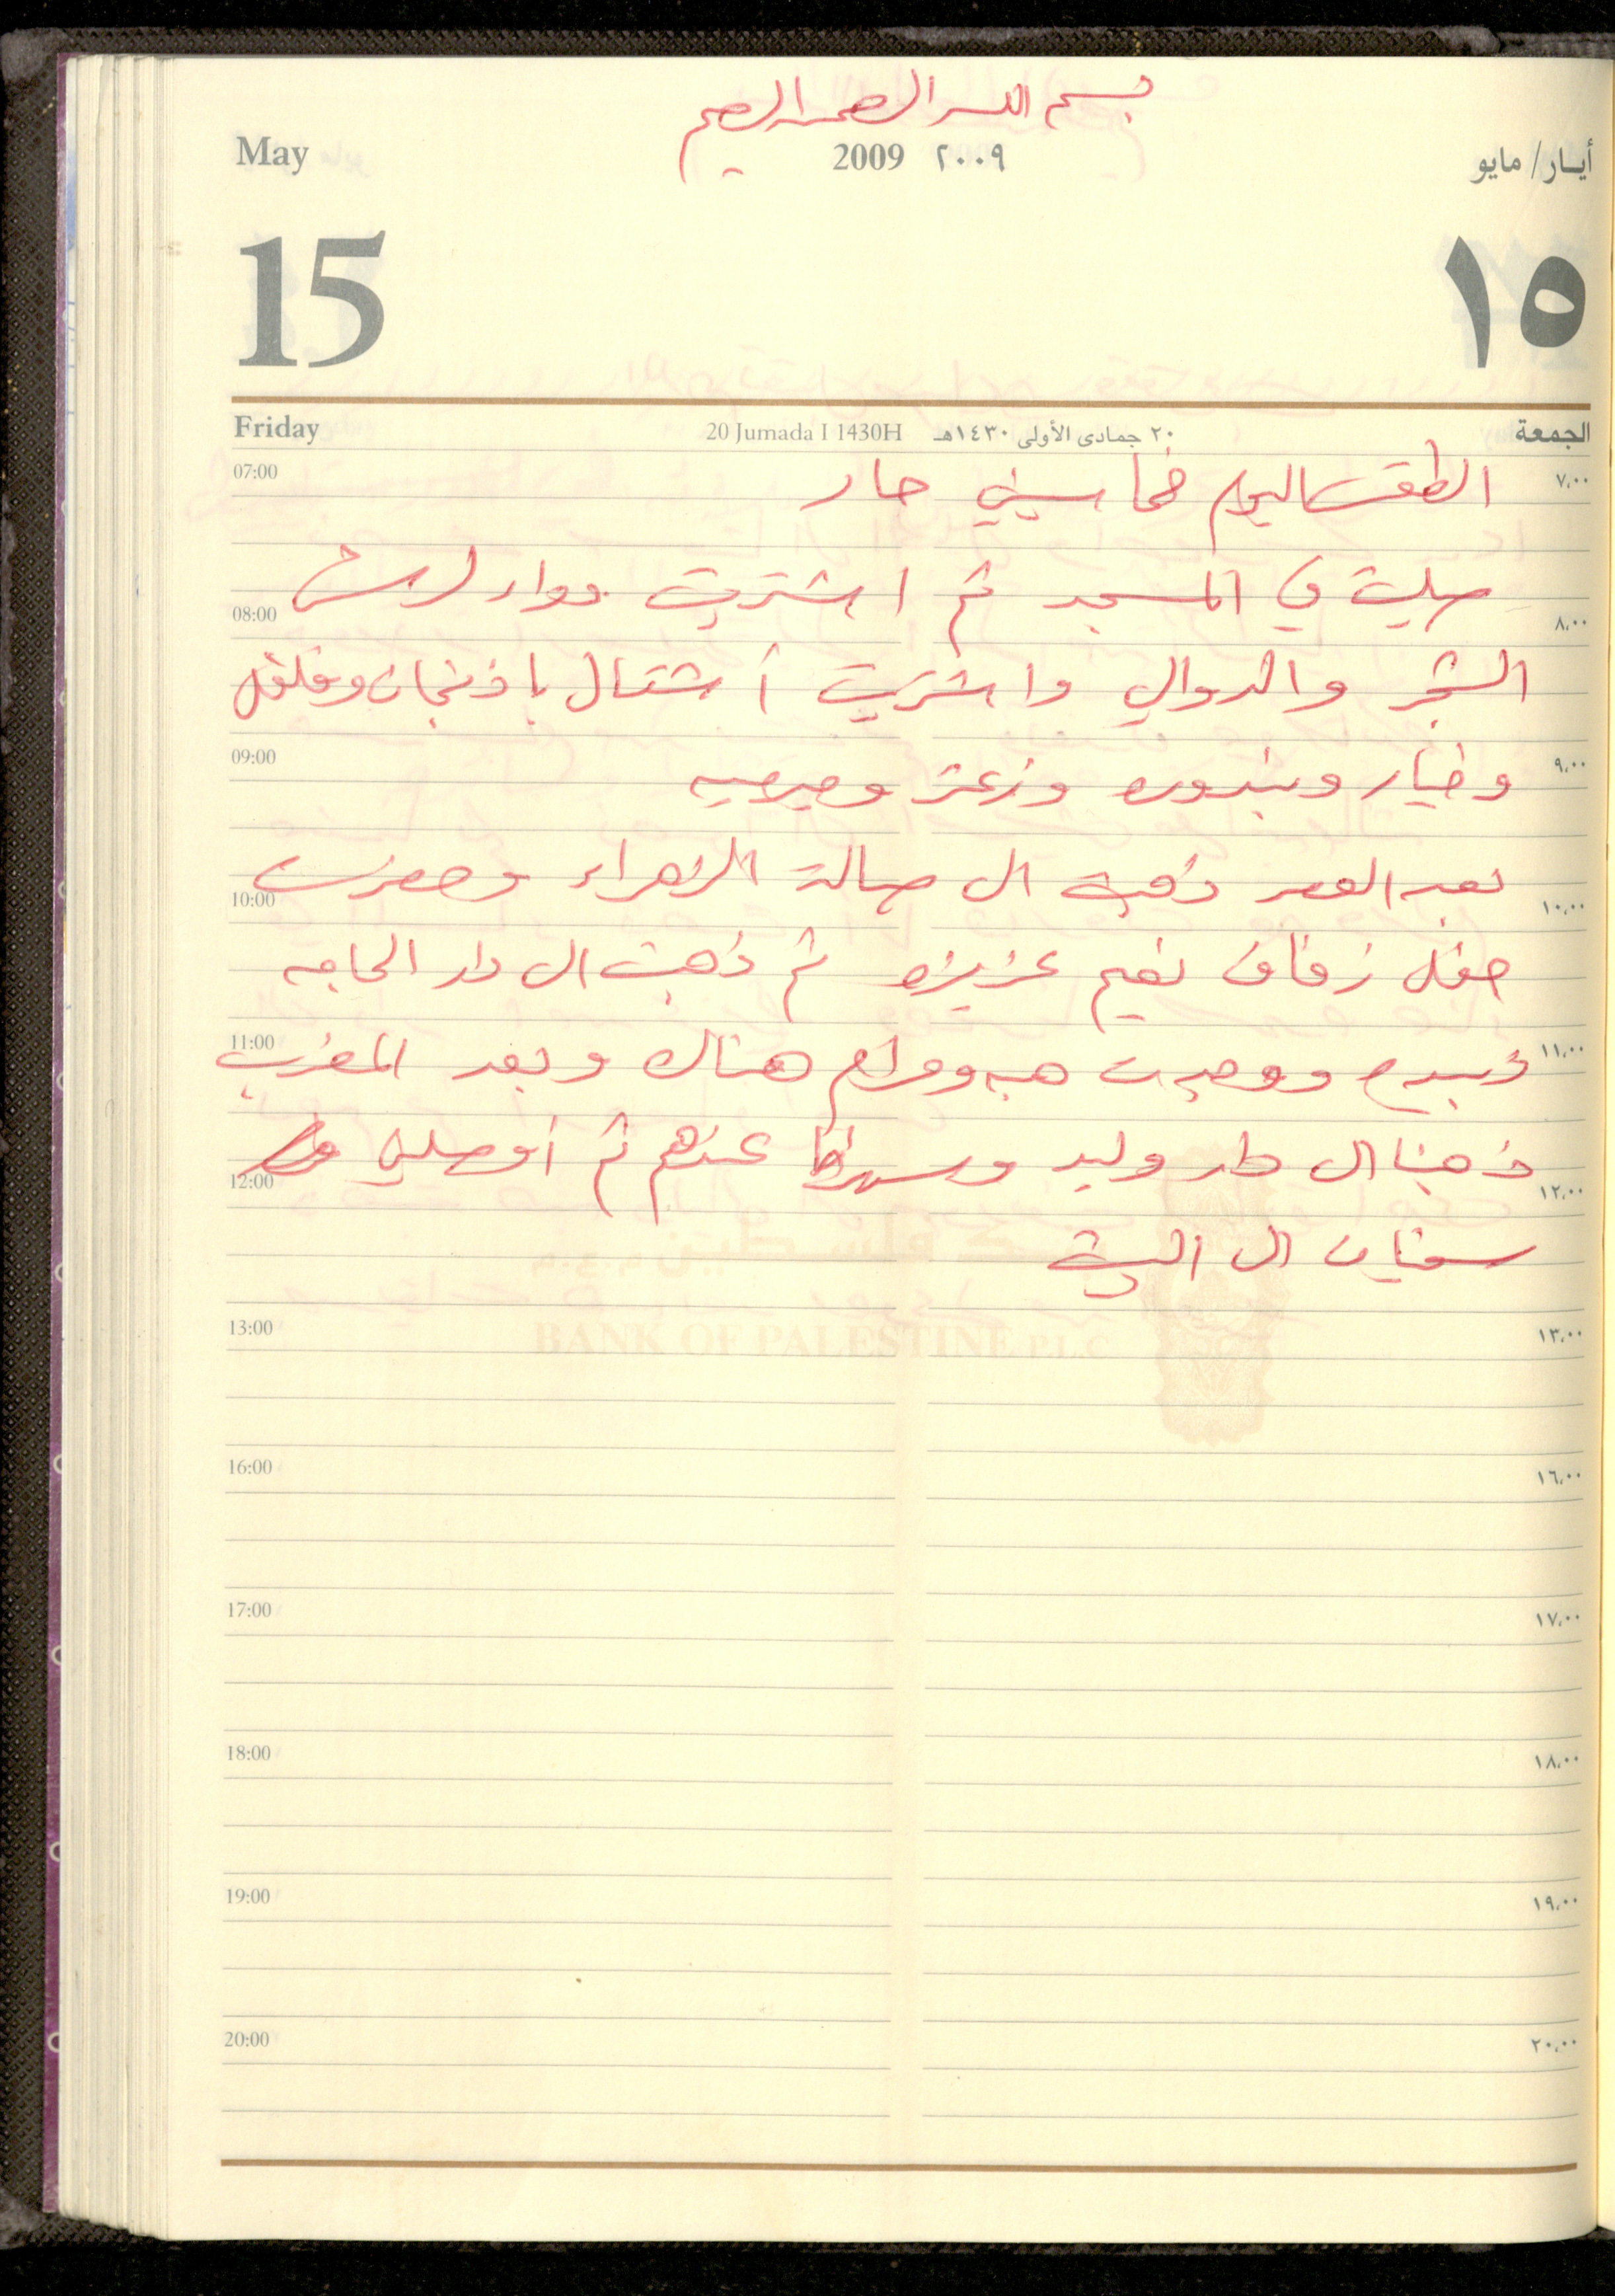 بسم الله الرحمن الرحيم
May 2009 ٢٠٠٩ أيار/ مايو
15 ١٥
Friday 20 Jumada I 1430H ٢٠ جمادى الأولى ١٤٣٠هـ الجمعة
07:00 الطقس اليوم خماسيني حار ٧,٠٠
صليت في المسجد ثم اشتريت دواء لرش
08:00 ٨,٠٠
الشجر والدوالي واشتريت أشتال باذنجان وفلفل
09:00 وخيار وبندوره وزعتر وميرميه ٩,٠٠
بعد العصر ذهبت الى صالة الزهراء وحضرت
10:00 ١٠,٠٠
حفل زفاف نعيم عزيزه ثم ذهبت الى دار الحاجه
11:00 ١١,٠٠
ووجدت هبه ومرام هناك وبعد المغرب
ذهبنا الى دار وليد وسهرنا عندهم ثم أوصلني
12:00 ١٢,٠٠
سفيان الى البيت
13:00 ١٣,٠٠
BANK OF PALESTINE P.L.C
16:00 ١٦,٠٠
17:00 ١٧,٠٠
18:00 ١٨,٠٠
19:00 ١٩,٠٠
20:00 ٢٠,٠٠